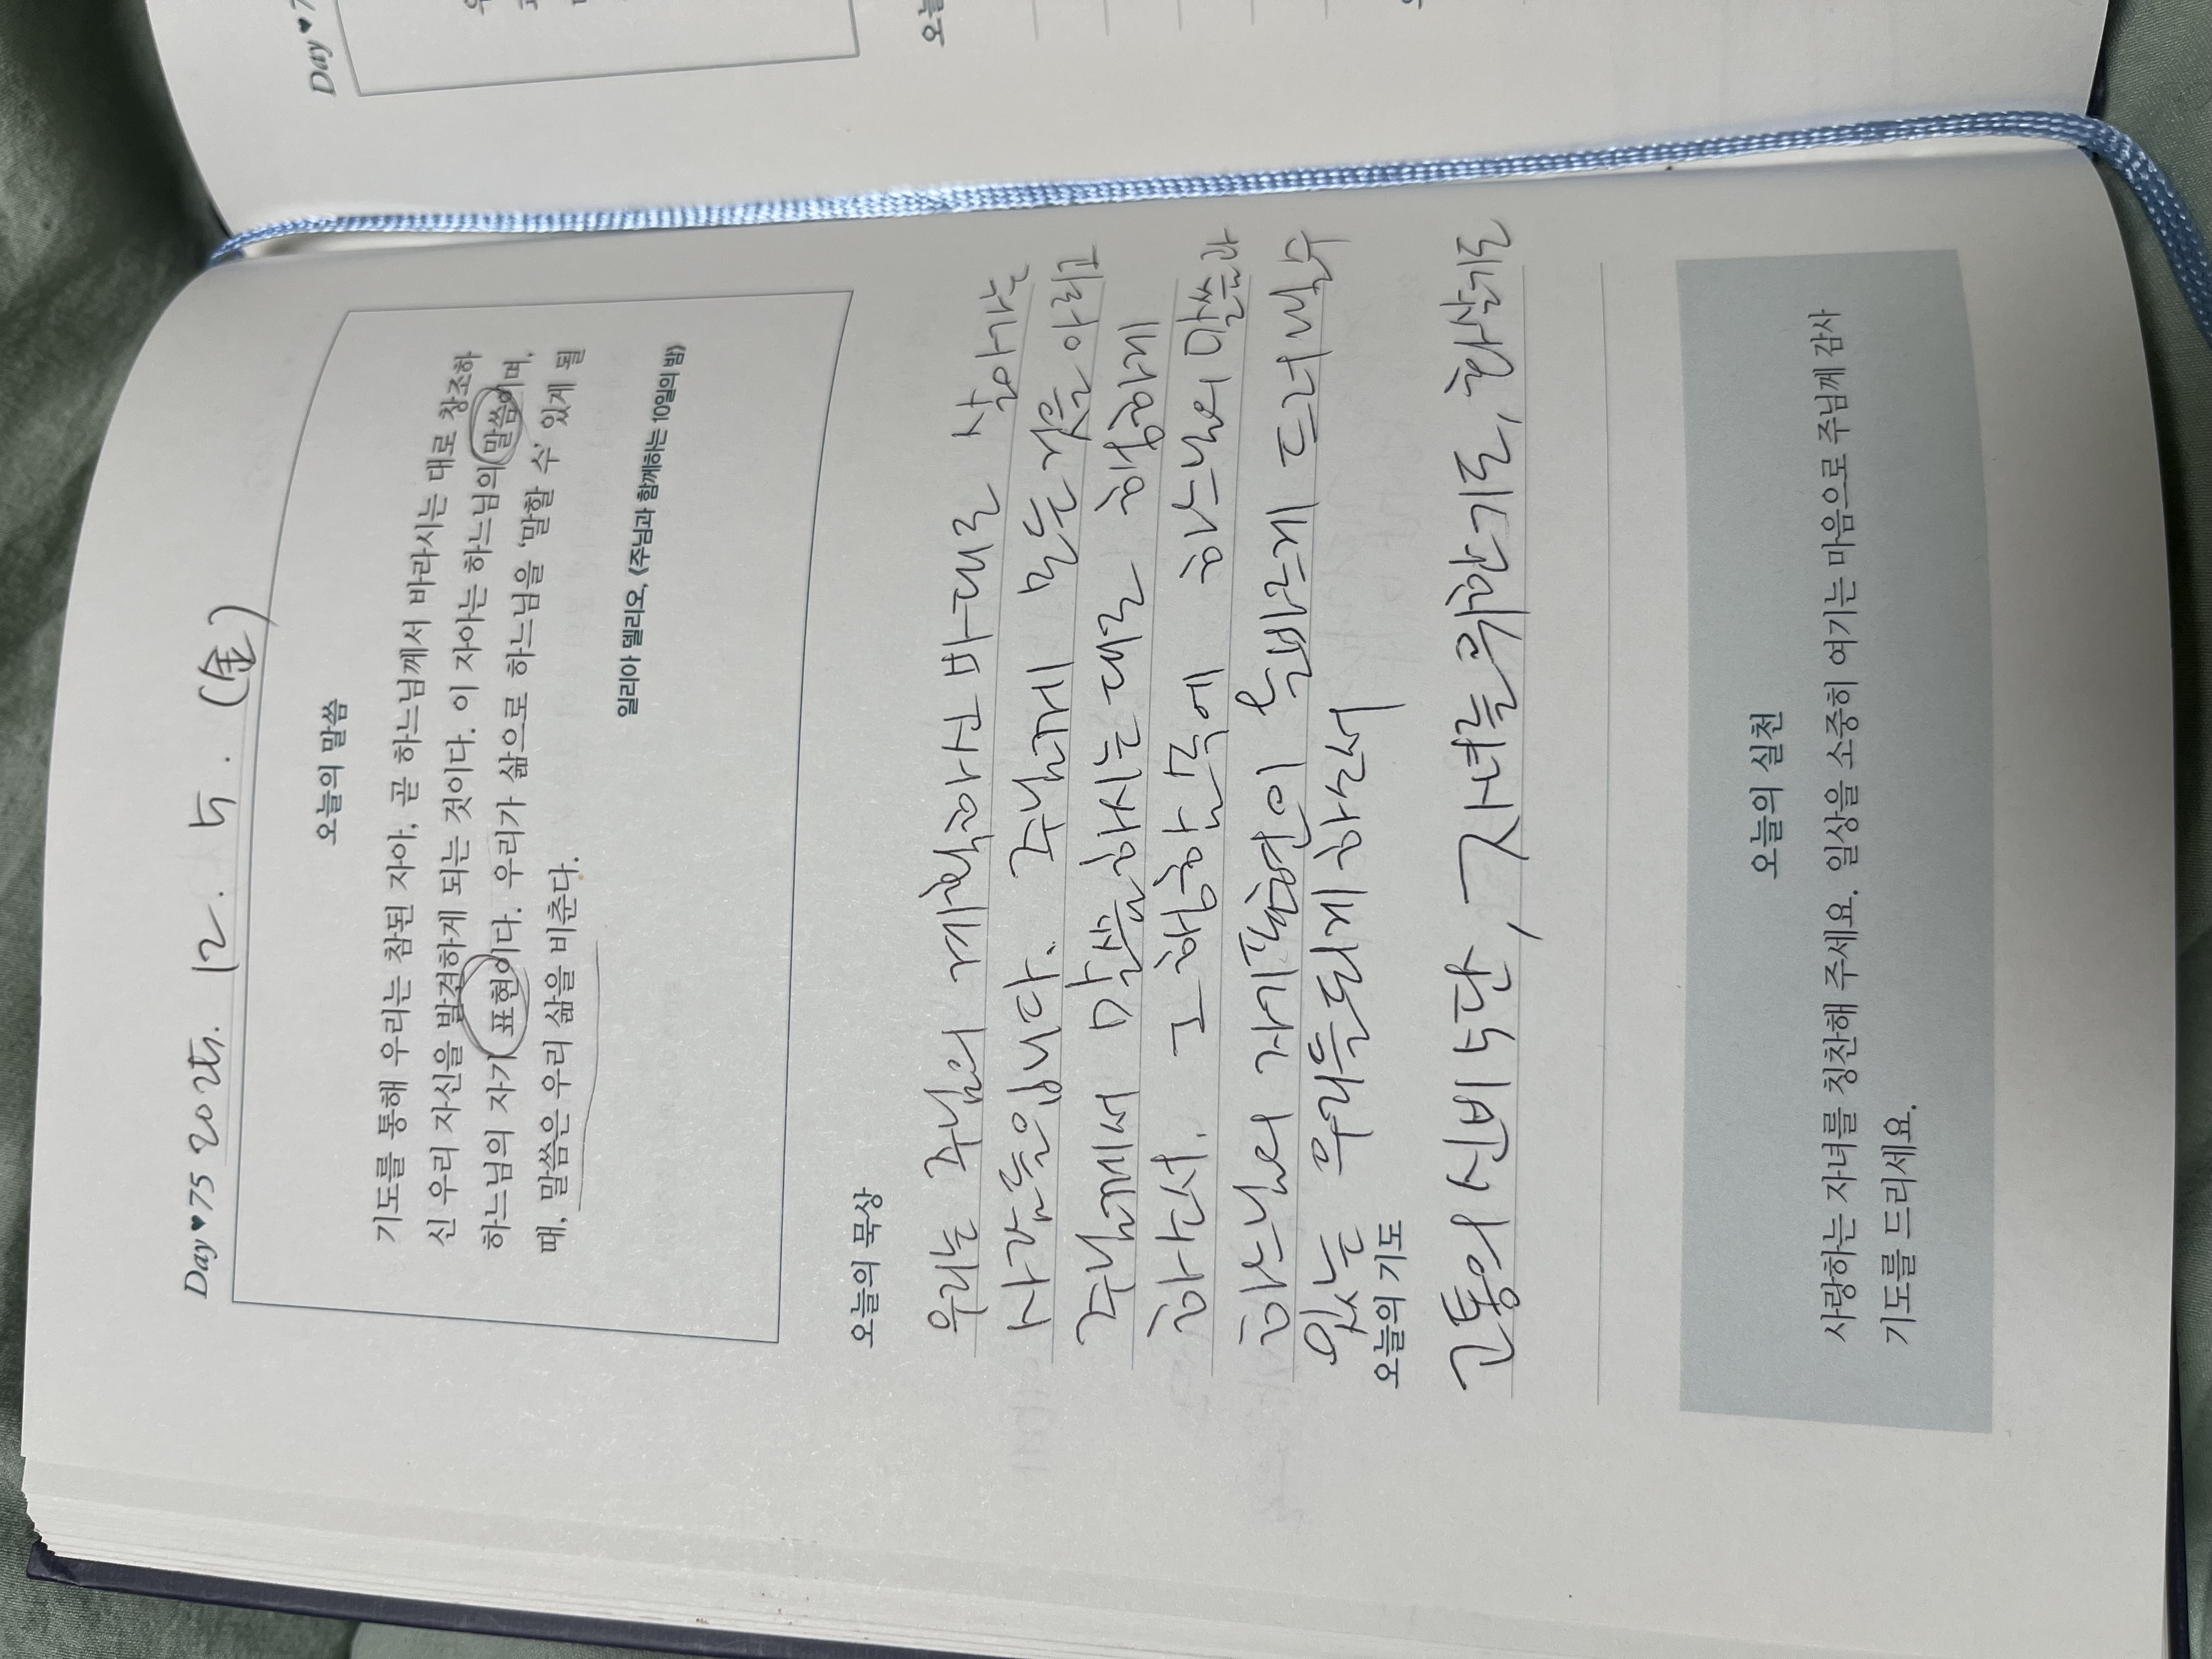 Day♥75 2025. 12. 5. (金)
오늘의 말씀
기도를 통해 우리는 참된 자아, 곧 하느님께서 바라시는 대로 창조하
신 우리 자신을 발견하게 되는 것이다. 이 자아는 하느님의 말씀이며,
하느님의 자기 표현이다. 우리가 삶으로 하느님을 '말할 수' 있게 될
때, 말씀은 우리 삶을 비춘다.
일리아 델리오, 《주님과 함께하는 10일의 밤》
오늘의 묵상
우리는 주님의 계획하신 바대로 살아가는
사람들입니다. 주님께 모든 것을 아뢰고
주님께서 말씀하시는 대로 행하게
하소서. 그 행함 속에 하느님의 말씀과
하느님의 자기표현이 올바르게 드러날 수
있는 우리들 되게 하소서
오늘의 기도
고통의 신비 5단, 자녀를 위한 기도, 화살기도
오늘의 실천
사랑하는 자녀를 칭찬해 주세요. 일상을 소중히 여기는 마음으로 주님께 감사
기도를 드리세요.
Day♥7
오늘